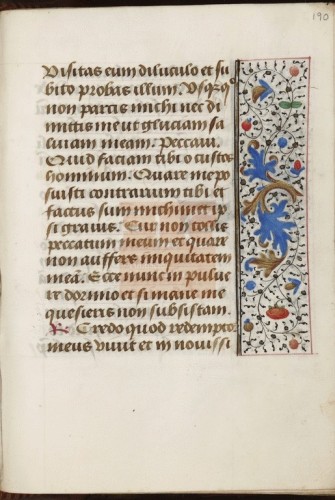 190
Visitas eum diluculo et su
bito probas illum. Vsqzqo
non parcis michi nec di
mittis me ut gluciam sa
liuam meam. Peccaui.
Quid faciam tibi o custos
hominum. Quare me po
suisti contrarium tibi et
factus sum michimet ip
si grauis. Cur non tollis
peccatum meum et quare
non auffers iniquitatem
meā. Ecce nunc in pulue
re dormio et si mane me
quesieris non subsistam.
R. Credo quod redemptor
meus viuit et in nouissi